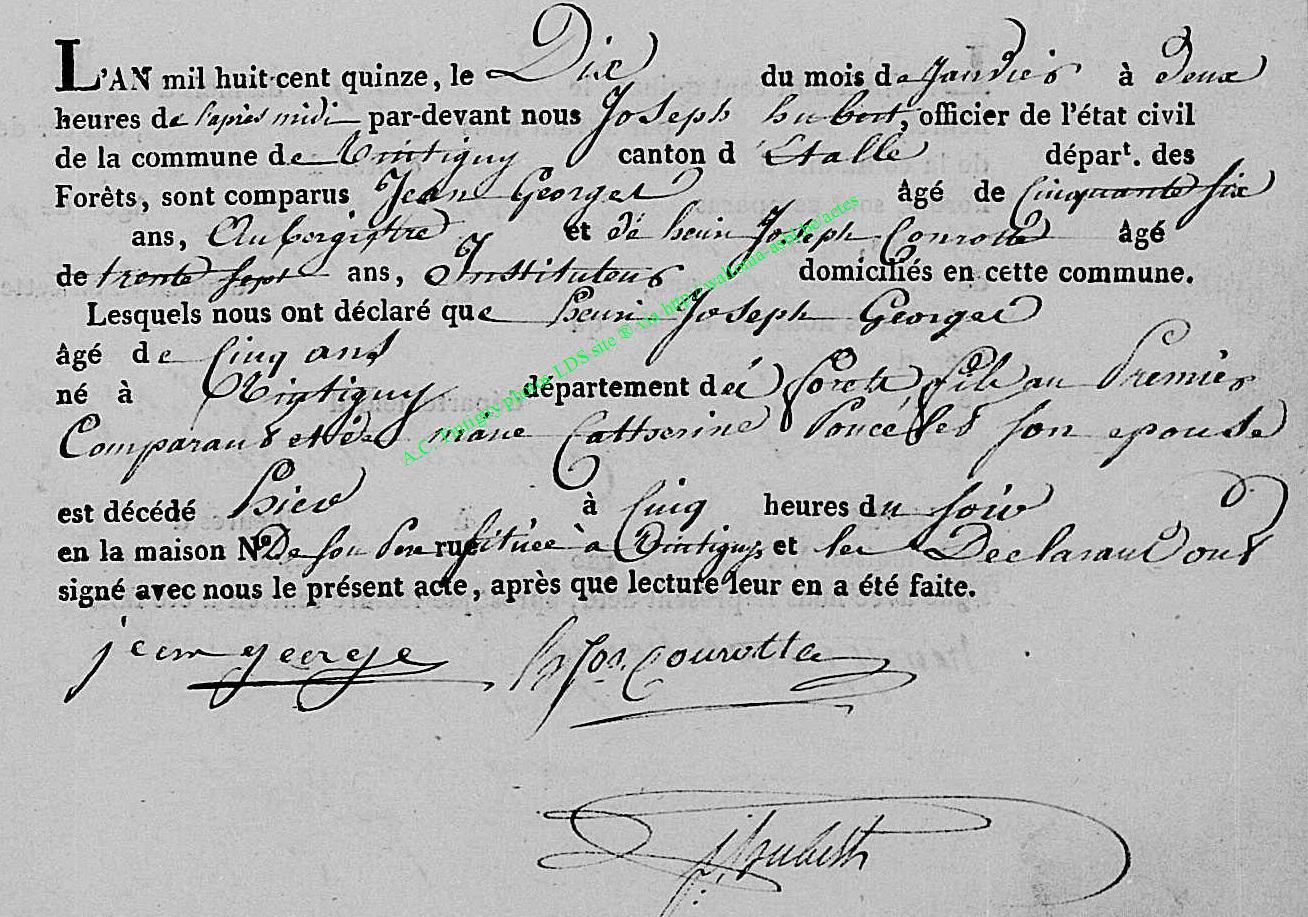 L'AN mil huit cent quinze, le Dix du mois de Janvier à Deux
heures de l'après midi par-devant nous Joseph hubert, officier de l'état civil
de la commune de Tintigny canton d'Etalle départ. des
Forêts, sont comparus Jean Georges âgé de Cinquante six
ans, Aubergistre et de henri Joseph Conrotte âgé
de trente sept ans, Instituteur domiciliés en cette commune.
Lesquels nous ont déclaré que henri Joseph Georges
âgé de Cinq ans
né à Tintigny département des forets, fils au Premier
Comparant et de marie Catherine Poncelet son epouse
est décédé hier à Cinq heures du soir
en la maison No De son Pere rue située à Tintigny, et les Declarant ont
signé avec nous le présent acte, après que lecture leur en a été faite.
jean george h Jos. Conrotte
J. hubert
A.C. Tintigny photos LDS site ® via http://wallonia-asbl.be/actes